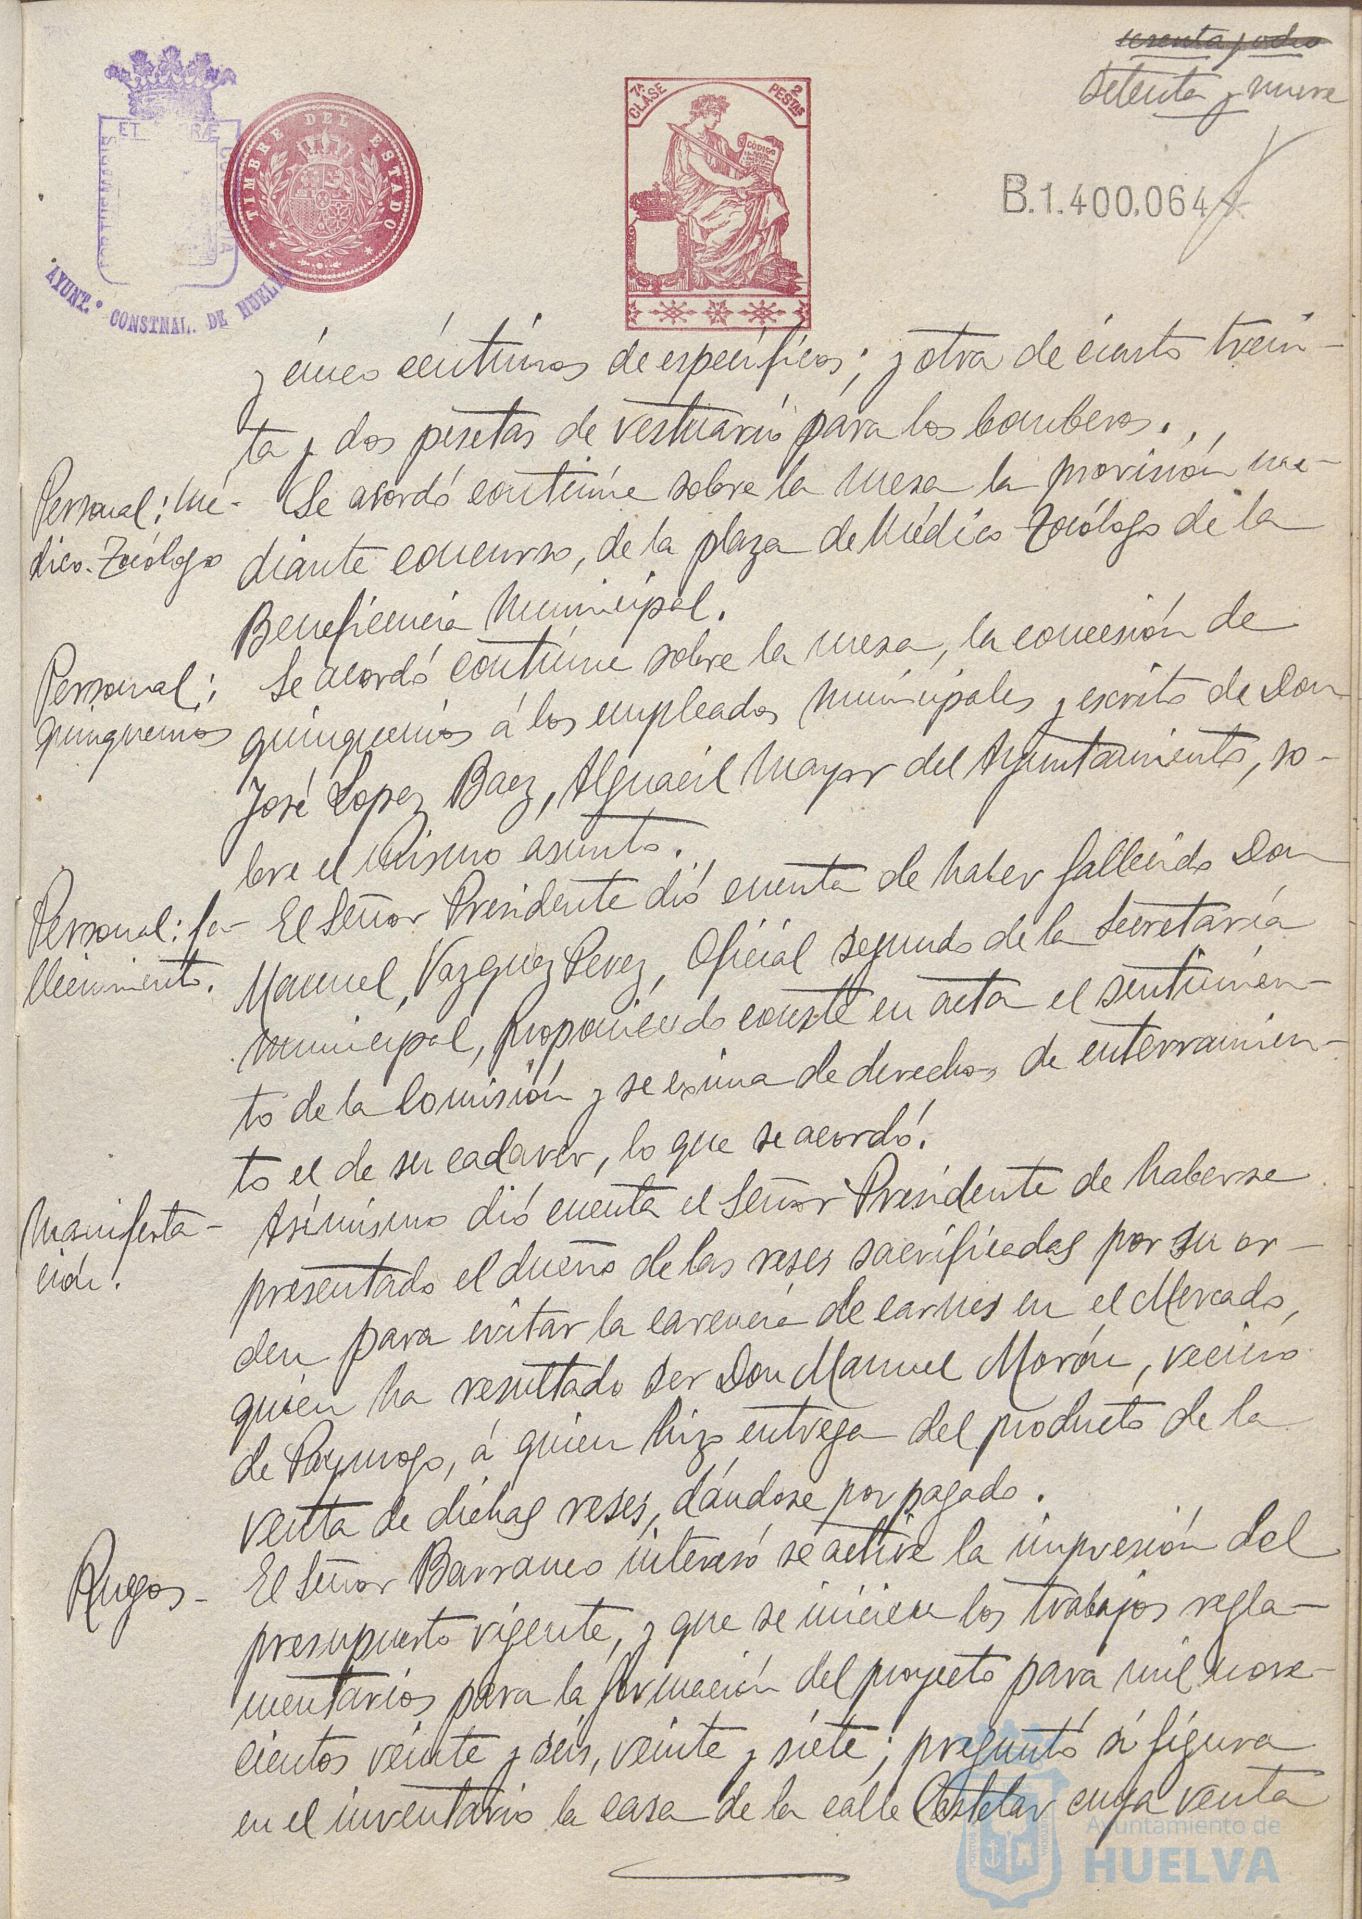 setenta y nueve
7ª CLASE
2 PESTAS
CÓDIGO
TIMBRE DEL ESTADO
AYUNT.º CONSTNAL. DE HUELVA
B.1.400.064
y cinco céntimos de específicos; y otra de ciento trein-
ta y dos pesetas de vestuario para los bomberos.
Personal: Mé-
dico-Tocólogo
Se acordó continúe sobre la mesa la provisión me-
diante concurso, de la plaza de Médico Tocólogo de la
Beneficencia Municipal.
Personal:
quinquenios
Se acordó continúe sobre la mesa, la concesión de
quinquenios á los empleados municipales y escrito de Don
José Lopez Baez, Alguacil Mayor del Ayuntamiento, so-
bre el mismo asunto.
Personal: fa-
llecimiento.
El Señor Presidente dió cuenta de haber fallecido Don
Manuel Vazquez Perez, Oficial segundo de la Secretaría
municipal, proponiendo conste en acta el sentimien-
to de la Comisión y se exima de derechos de enterramien-
to el de su cadaver, lo que se acordó.
Manifesta-
ción.
Asimismo dió cuenta el Señor Presidente de haberse
presentado el dueño de las reses sacrificadas por su or-
den para evitar la carencia de carnes en el Mercado,
quien ha resultado ser Don Manuel Morón, vecino
de Paymogo, á quien hizo entrega del producto de la
venta de dichas reses, dándose por pagado.
Ruegos-
El Señor Barranco interesó se active la impresión del
presupuesto vigente, y que se inicien los trabajos regla-
mentarios para la formación del proyecto para mil nove-
cientos veinte y seis, veinte y siete; preguntó si figura
en el inventario la casa de la calle Castelar cuya venta
Ayuntamiento de
HUELVA